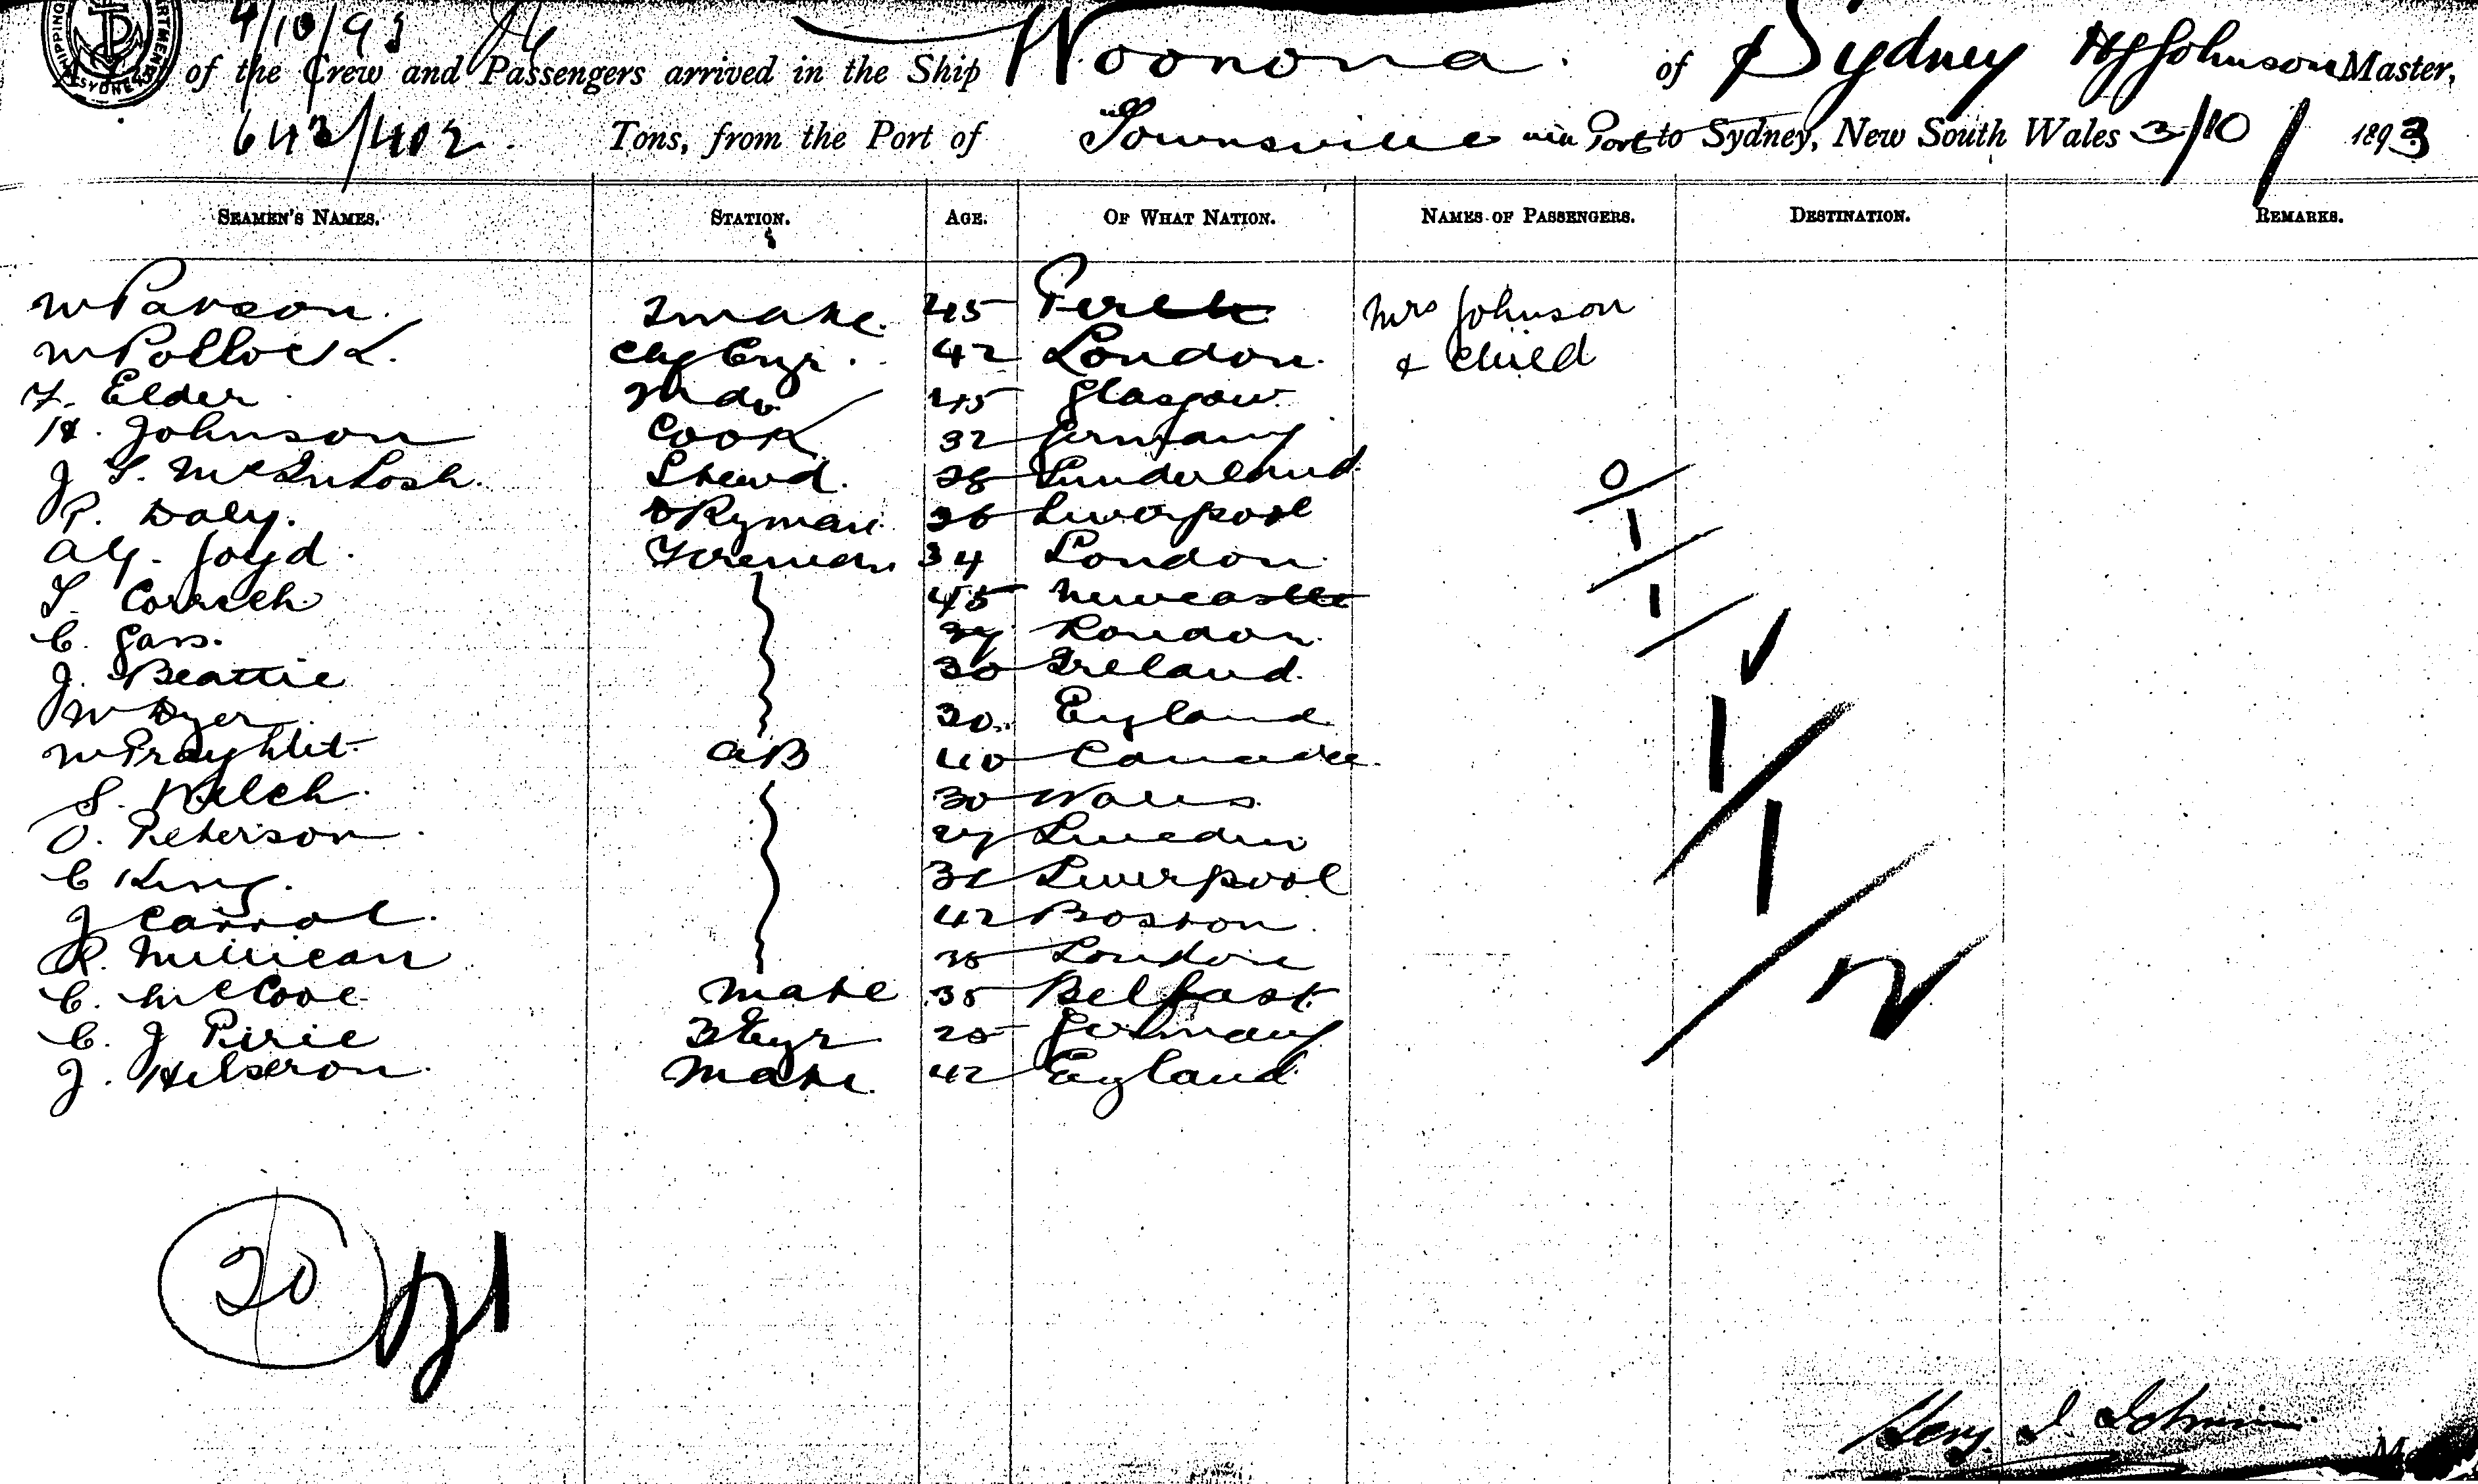 SHIPPING DEPARTMENT SYDNEY
4/10/93
A List of the Crew and Passengers arrived in the Ship Woonona. of Sydney HJ Johnson Master,
643/402 Tons, from the Port of Townsville via Port to Sydney, New South Wales 3/10/1893
SEAMEN'S NAMES. STATION. AGE. OF WHAT NATION. NAMES OF PASSENGERS. DESTINATION. REMARKS.
W Parson. 2 mate. 45 Perth Mrs Johnson
W Pollock. Chf Engr. 42 London. & child
T. Elder 2nd do 45 Glasgow.
H. Johnson Cook 32 Germany
J S. McIntosh. Stewd. 28 Sunderland
P. Daly. DKyman. 36 Liverpool 0
A G. Joyd. Fireman 34 London. 1
T. Correch 45 Newcastle 1
C. Gass. London.
J. Beattie 30 Ireland.
W Dyer 30. England 1
W AB 40 Canada.
S. Welch. 30 Wales. 1
O. Peterson 27 Sweden
C King. Liverpool
J Carrol. 42 Boston. 2
R. Millican London
C. McCooe mate 35 Belfast.
C. J Pirie 3 Engr 25 Germany
J. Mate. 42 England
20 21
Heny. J. Johnson.